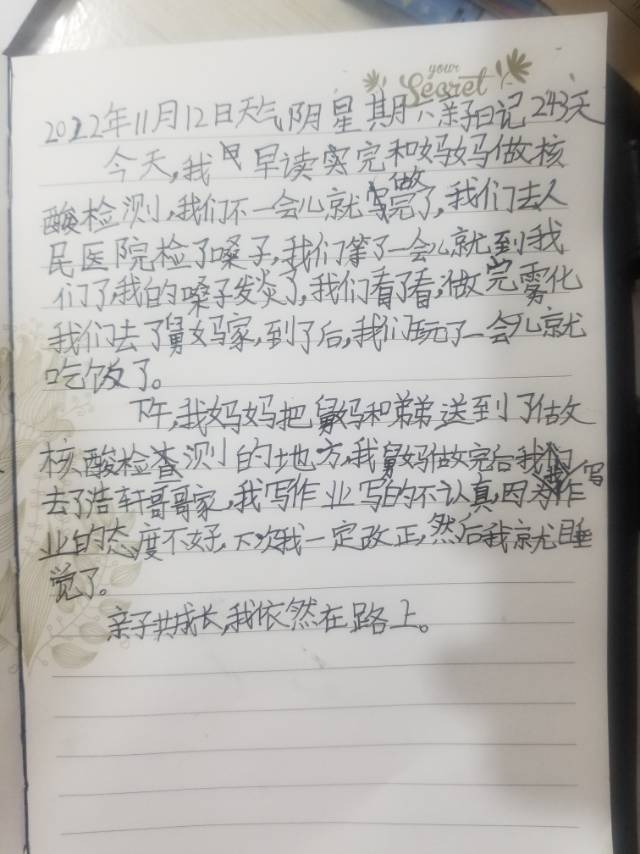 your
Secret
2022年11月12日天气阴星期六亲子日记243天
今天,我早读完和妈妈做核
酸检测,我们不一会儿就做完了,我们去人
民医院检了嗓子,我们等了一会儿就到我
们了,我的嗓子发炎了,我们看了看,做完雾化
我们去了舅妈家,到了后,我们玩了一会儿就
吃饭了。
下午,我妈妈把舅妈和弟弟送到了做
核酸检查测的地方,我舅妈做完后我们
去了浩轩哥哥家,我写作业写的不认真,因为写作
业的态度不好,下次我一定改正,然后我就睡
觉了。
亲子共成长,我依然在路上。